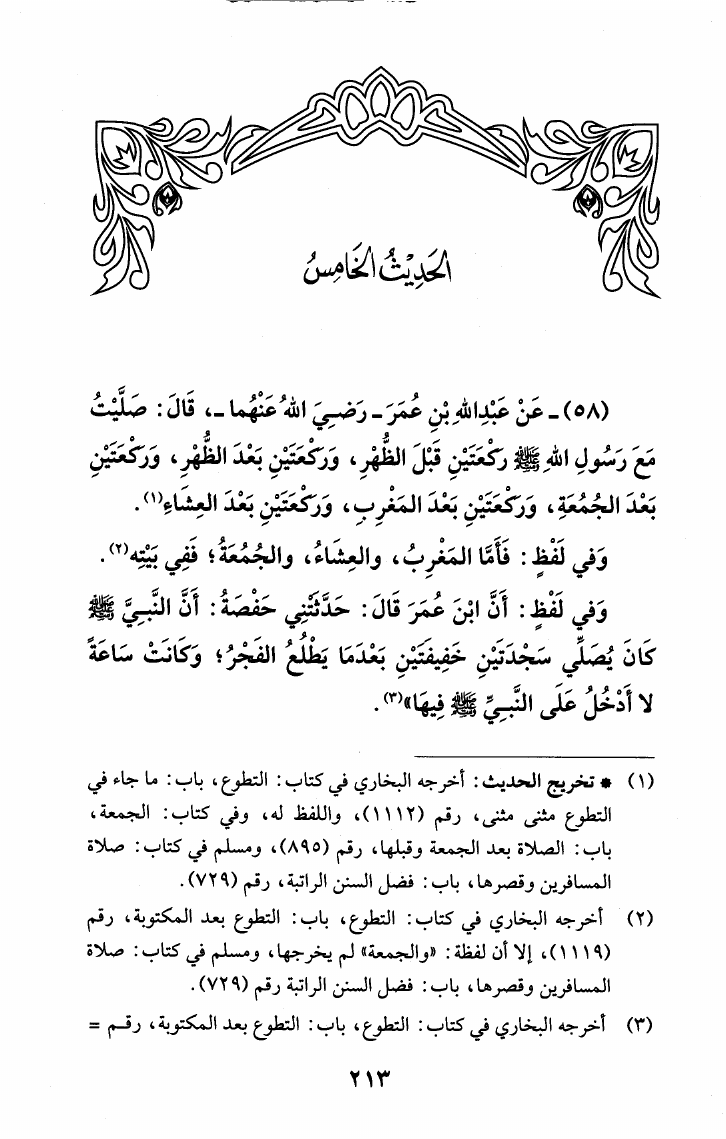 الحَدِيْثُ الخَامِسُ
(٥٨) ـ عَنْ عَبْدِاللهِ بْنِ عُمَرَ ـ رَضِيَ اللهُ عَنْهُما ـ، قَالَ: صَلَّيْتُ
مَعَ رَسُولِ اللهِ ﷺ رَكْعَتَيْنِ قَبْلَ الظُّهْرِ، وَرَكْعَتَيْنِ بَعْدَ الظُّهْرِ، وَرَكْعَتَيْنِ
بَعْدَ الجُمُعَةِ، وَرَكْعَتَيْنِ بَعْدَ المَغْرِبِ، وَرَكْعَتَيْنِ بَعْدَ العِشَاءِ(١).
وَفي لَفْظٍ: فَأَمَّا المَغْرِبُ، والعِشَاءُ، والجُمُعَةُ؛ فَفِي بَيْتِه(٢).
وَفي لَفْظٍ: أَنَّ ابْنَ عُمَرَ قَالَ: حَدَّثَتْنِي حَفْصَةُ: أَنَّ النَّبِيَّ ﷺ
كَانَ يُصَلِّي سَجْدَتَينِ خَفِيفَتَيْنِ بَعْدَمَا يَطْلُعُ الفَجْرُ؛ وَكَانَتْ سَاعَةً
لا أَدْخُلُ عَلَى النَّبِيِّ ﷺ فِيهَا»(٣).
(١) * تخريج الحديث: أخرجه البخاري في كتاب: التطوع، باب: ما جاء في
التطوع مثنى مثنى، رقم (١١١٢)، واللفظ له، وفي كتاب: الجمعة،
باب: الصلاة بعد الجمعة وقبلها، رقم (٨٩٥)، ومسلم في كتاب: صلاة
المسافرين وقصرها، باب: فضل السنن الراتبة، رقم (٧٢٩).
(٢) أخرجه البخاري في كتاب: التطوع، باب: التطوع بعد المكتوبة، رقم
(١١١٩)، إلا أن لفظة: «والجمعة» لم يخرجها، ومسلم في كتاب: صلاة
المسافرين وقصرها، باب: فضل السنن الراتبة رقم (٧٢٩).
(٣) أخرجه البخاري في كتاب: التطوع، باب: التطوع بعد المكتوبة، رقم =
٢١٣